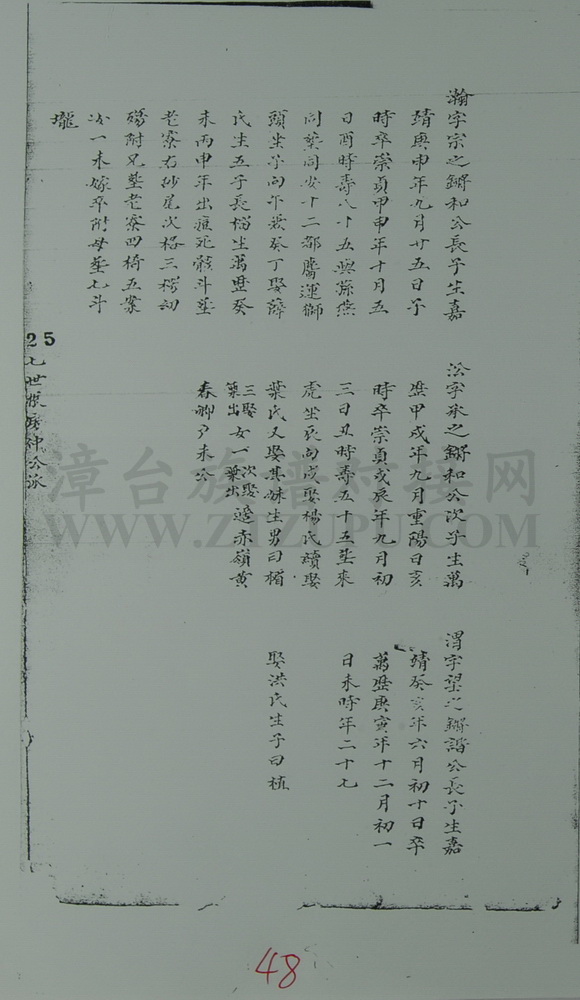 瀚字宗之鏘和公長子生嘉
靖庚申年九月廿五日子
時卒崇貞甲申年十月五
日酉時壽八十五與孫燕
同葬同安十二都鷹運獅
頭坐子向午兼癸丁娶薛
氏生五子長 生萬歷癸
未丙申年出痘死骸斗塟
老寮右抄尾次格三樗幼
殤附兄塟老寮四椅五案
次一未嫁卒附母塟七斗
壠
25
七世
公派
字承之鏘和公次子生萬
歷甲戌年九月重陽日亥
時卒崇貞戊辰年九月初
三日丑時壽五十五塟來
虎坐辰向戌娶楊氏續娶
葉氏又娶其妹生男曰楣
三娶 次娶
葉出女一葉出適赤嶺黃
春卿戶未公
渭字望之鏘諧公長子生嘉
靖癸亥年六月初十日卒
萬歷庚寅年十二月初一
日未時年二十七
娶洪氏生子曰植
漳台族譜对接网
WWW.ZTZUPU.COM
48